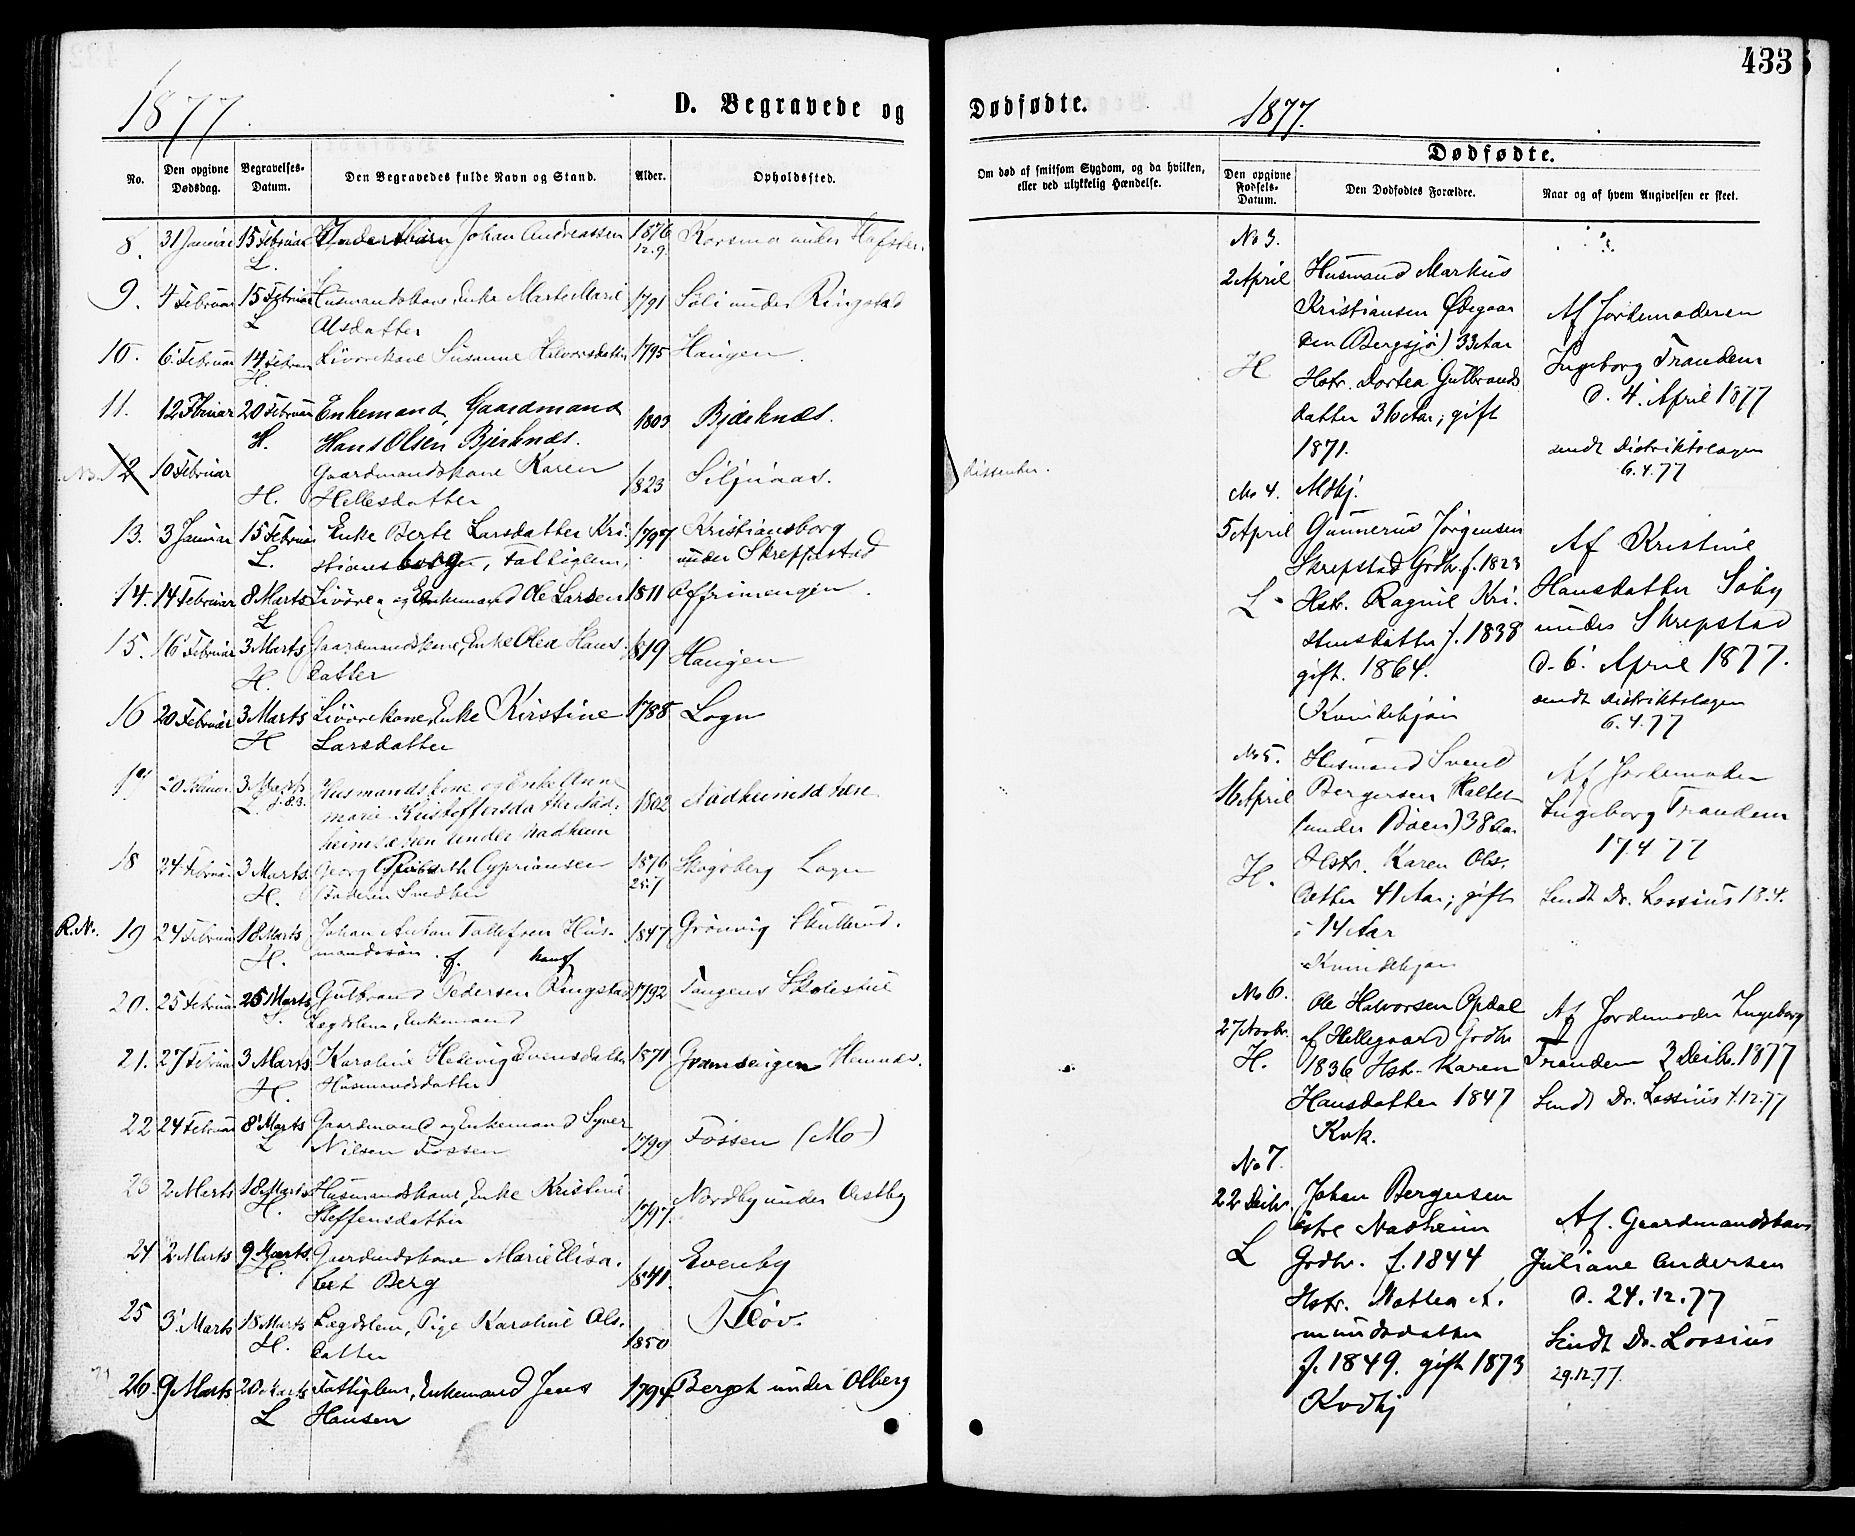 433
1877
D. Begravede og
No.
Den opgivne Dødsdag.
Begravelses-Datum.
Den Begravedes fulde Navn og Stand.
Alder.
Opholdssted.
8. 31 Januar 15 Februar Johan Andreassen 1876 under
L. 12.9
9. 4 Februar 15 Februar Husmandskone, Enke Marte Marie 1791 Søli under Ringstad
L Olsdatter
10. 6 Februar 14 Februar Susanne Halvorsdatter 1795 Haugen
H.
11. 12 Februar 20 Februar Enkemand Gaardmand 1803 Bjerknæs.
H. Hans Olsen Bjerknæs.
12 10 Februar Gaardmandskone Karen 1823
H. Hellesdatter
13. 3 Januar 15 Februar Enke Berte Larsdatter Kri- 1797 Kristiansborg
L. stiansborg, Fattiglem, under Skrepstad
14. 14 Februar 8 Marts og Enkemand Ole Larsen 1811
L
15. 16 Februar 3 Marts Gaardmandskone, Enke Olea Hans- 1819 Haugen
H. datter
16 20 Februar 3 Marts Enke Kirstine 1788 Logn
H Larsdatter
17 20 Februar 3 Marts Husmandskone og Enke Anne
L. marie Kristoffersdatter Nad- 1802
under Nadheim
18 24 Februar 3 Marts Georg Cypriansen 1876 Skogsberg Logn
H. Faderen Snedker
R.No. 19 24 Februar 18 Marts Johan Anton Tollefsen Hus- 1847 Grønvig Skullerud.
H. mandssøn.
20. 25 Februar 25 Marts Gulbrand Pedersen Ringstad 1792 Tangens
Lægdslem, Enkemand
21. 27 Februar 3 Marts Karoline Hedevig Evensdatter 1871 Hemnæs.
H. Husmandsdatter
22 24 Februar 8 Marts Gaardmand og Enkemand Syver 1799 Fossen (Mo)
L Nilsen Fossen
23 2 Marts 18 Marts Husmandskone, Enke Kristine 1797. Nordby under Østby
H. Steffensdatter
24 2 Marts 9 Marts Marie Elisa- 1841. Evenby
H. bet Berg
25 3 Marts 18 Marts Lægdslem, Pige Karoline Ols- 1850 Kløv.
H. datter
26. 9 Marts 20 Marts Fattiglem, Enkemand Jens under Olberg
L Hansen
Dødfødte.
1877.
Om død af smitsom Sygdom, og da hvilken, eller ved ulykkelig Hændelse.
Dødfødte.
Den opgivne Fødsels-Datum.
Den Dødfødtes Forældre.
Naar og af hvem Angivelsen er skeet.
dissenter.
No 3.
2 April Husmand Markus
Kristiansen Ødegaar
den (Bergsjø) 33 Aar
H Hstr. Dortea Gulbrands
datter 36 Aar; gift
1871.
Mdkj.
Af Jordemoderen
Ingeborg Frandem
d. 4. April 1877
sendt Distriktslægen
6.4.77
No 4.
5 April Gunnerus Jørgensen
Skrepstad Grdbr. f. 1823
L. Hstr. Ragnil Kri-
stensdatter f. 1838
gift. 1864.
Kvindekjøn
Af Kristine
Hansdatter Søby
under Skrepstad
d. 6. April 1877.
sendt Distriktslægen
6.4.77
No 5.
16 April Husmand Svend
Bergersen
(under Bøen) 38 Aar
H. Hstr. Karen Ols-
datter 41 Aar; gift
i 14 Aar
Kvindekjøn
Af Jordemoder
Ingeborg Frandem
17.4 77
Sendt Dr. Lossius 18.4.
No 6.
27 Novbr. Ole Halvorsen Opdal
af Hellegaard Grdbr
H. 1836 Hstr. Karen
Hansdatter 1847
Kvk.
Af Jordemoder Ingeborg
Frandem 3 Decbr. 1877
Sendt Dr. Lossius 4.12.77
No 7.
22 Decbr. Johan Bergersen
østre Nadheim
L Grdbr. f. 1844
Hstr. Mattea A.
mundsdatter
f. 1849. gift 1873
Kvdkj
Af. Gaardmandskone
Juliane Andersen
d. 24.12.77
Sendt Dr. Lossius
29.12.77.